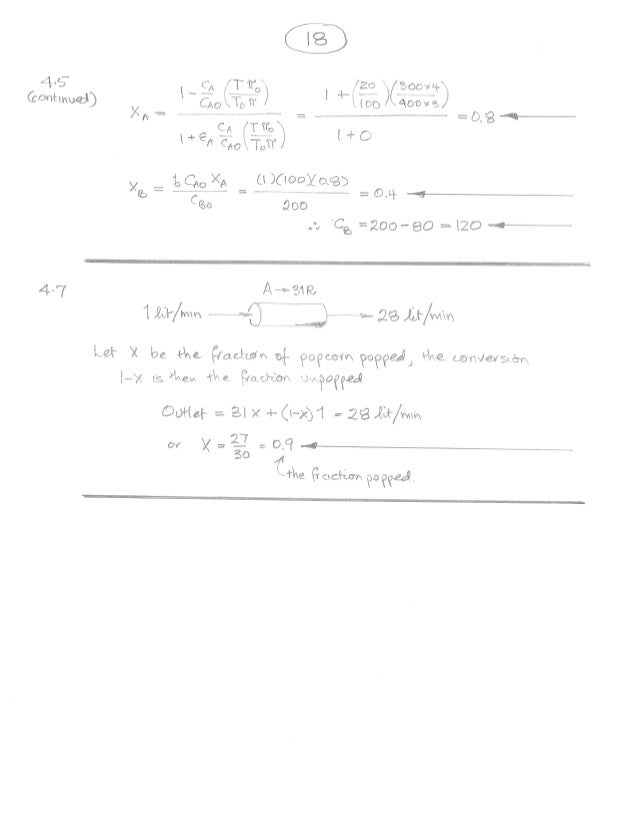 18
4.5
(continued)
X_A = (1 - C_A/C_A0 (Tπ_0/T_0π)) / (1 + ε_A C_A/C_A0 (Tπ_0/T_0π)) = (1 + (20/100)(300×4/400×3)) / (1 + 0) = 0.8
X_B = b C_A0 X_A / C_B0 = (1)(100)(0.8) / 200 = 0.4
∴ C_B = 200 - 80 = 120
4.7
A → 31R
1 lit/min → → 28 lit/min
Let X be the fraction of popcorn popped, the conversion
1-X is then the fraction unpopped
Outlet = 31X + (1-X)1 = 28 lit/min
or X = 27/30 = 0.9
the fraction popped.